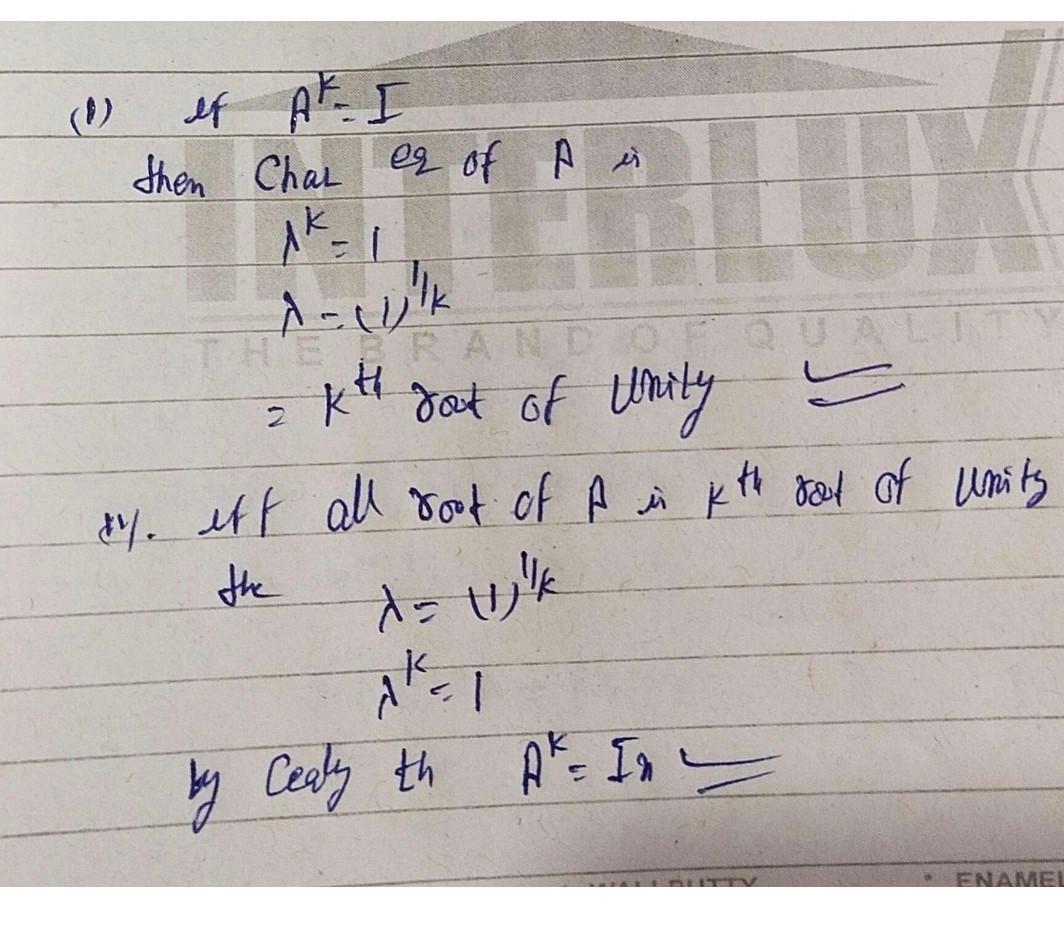 (1) if A^K = I
then Char eq of A is
λ^K = 1
INTERLUX
λ = (1)^1/K
THE BRAND OF QUALITY
= K^th root of Unity
iff all root of A is K^th root of Unity
the λ = (1)^1/K
λ^K = 1
by th A^K = In
WALL PUTTY * ENAMEL